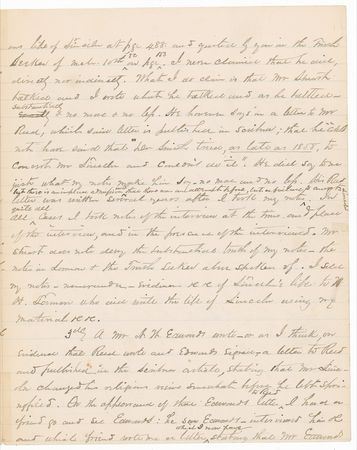 ons life of Lincoln at pge 488 and quoted by you in the Truth
Seeker of mch. 10th 83 on pge. I never claimed that he did,
directly nor indirectly. What I do claim is that Mr Stuart
talked and I wrote what he talked and as he talked –
substantially
& no more & no less. He however says in a letter to Mr
Reed, which said letter is published in Scribner, that he did
not have said that "Dr Smith tried, as late as 1858, to
convert Mr Lincoln and couldn't do it". He did say to me
just what my notes make him say – no more and no less. His Reed
letter was written several years after I took my notes. In
all cases I took notes of the interview at the time and place
of the interview, and in the presence of the interviewed. Mr
Stuart does not deny the substantial truth of my notes – the
notes in Lamon & the Truth Seeker above spoken of. I sold
my notes – memoranda – evidence &c &c of Lincoln's life to W
H. Lamon who did write the life of Lincoln using my
material &c &c.
3dly A Mr N. W. Edwards wrote – or as I think, on
evidence that Reed wrote and Edwards signed a letter to Reed
and published in the Scribner article, stating that Mr Lincoln
changed his religious views somewhat before he left Springfield.
On the appearance of these Edwards letter to Reed, I had a
friend go and see Edwards: he saw Edwards – interviewed him &c
and which friend wrote me a letter, which I now have, stating that Mr Edwards